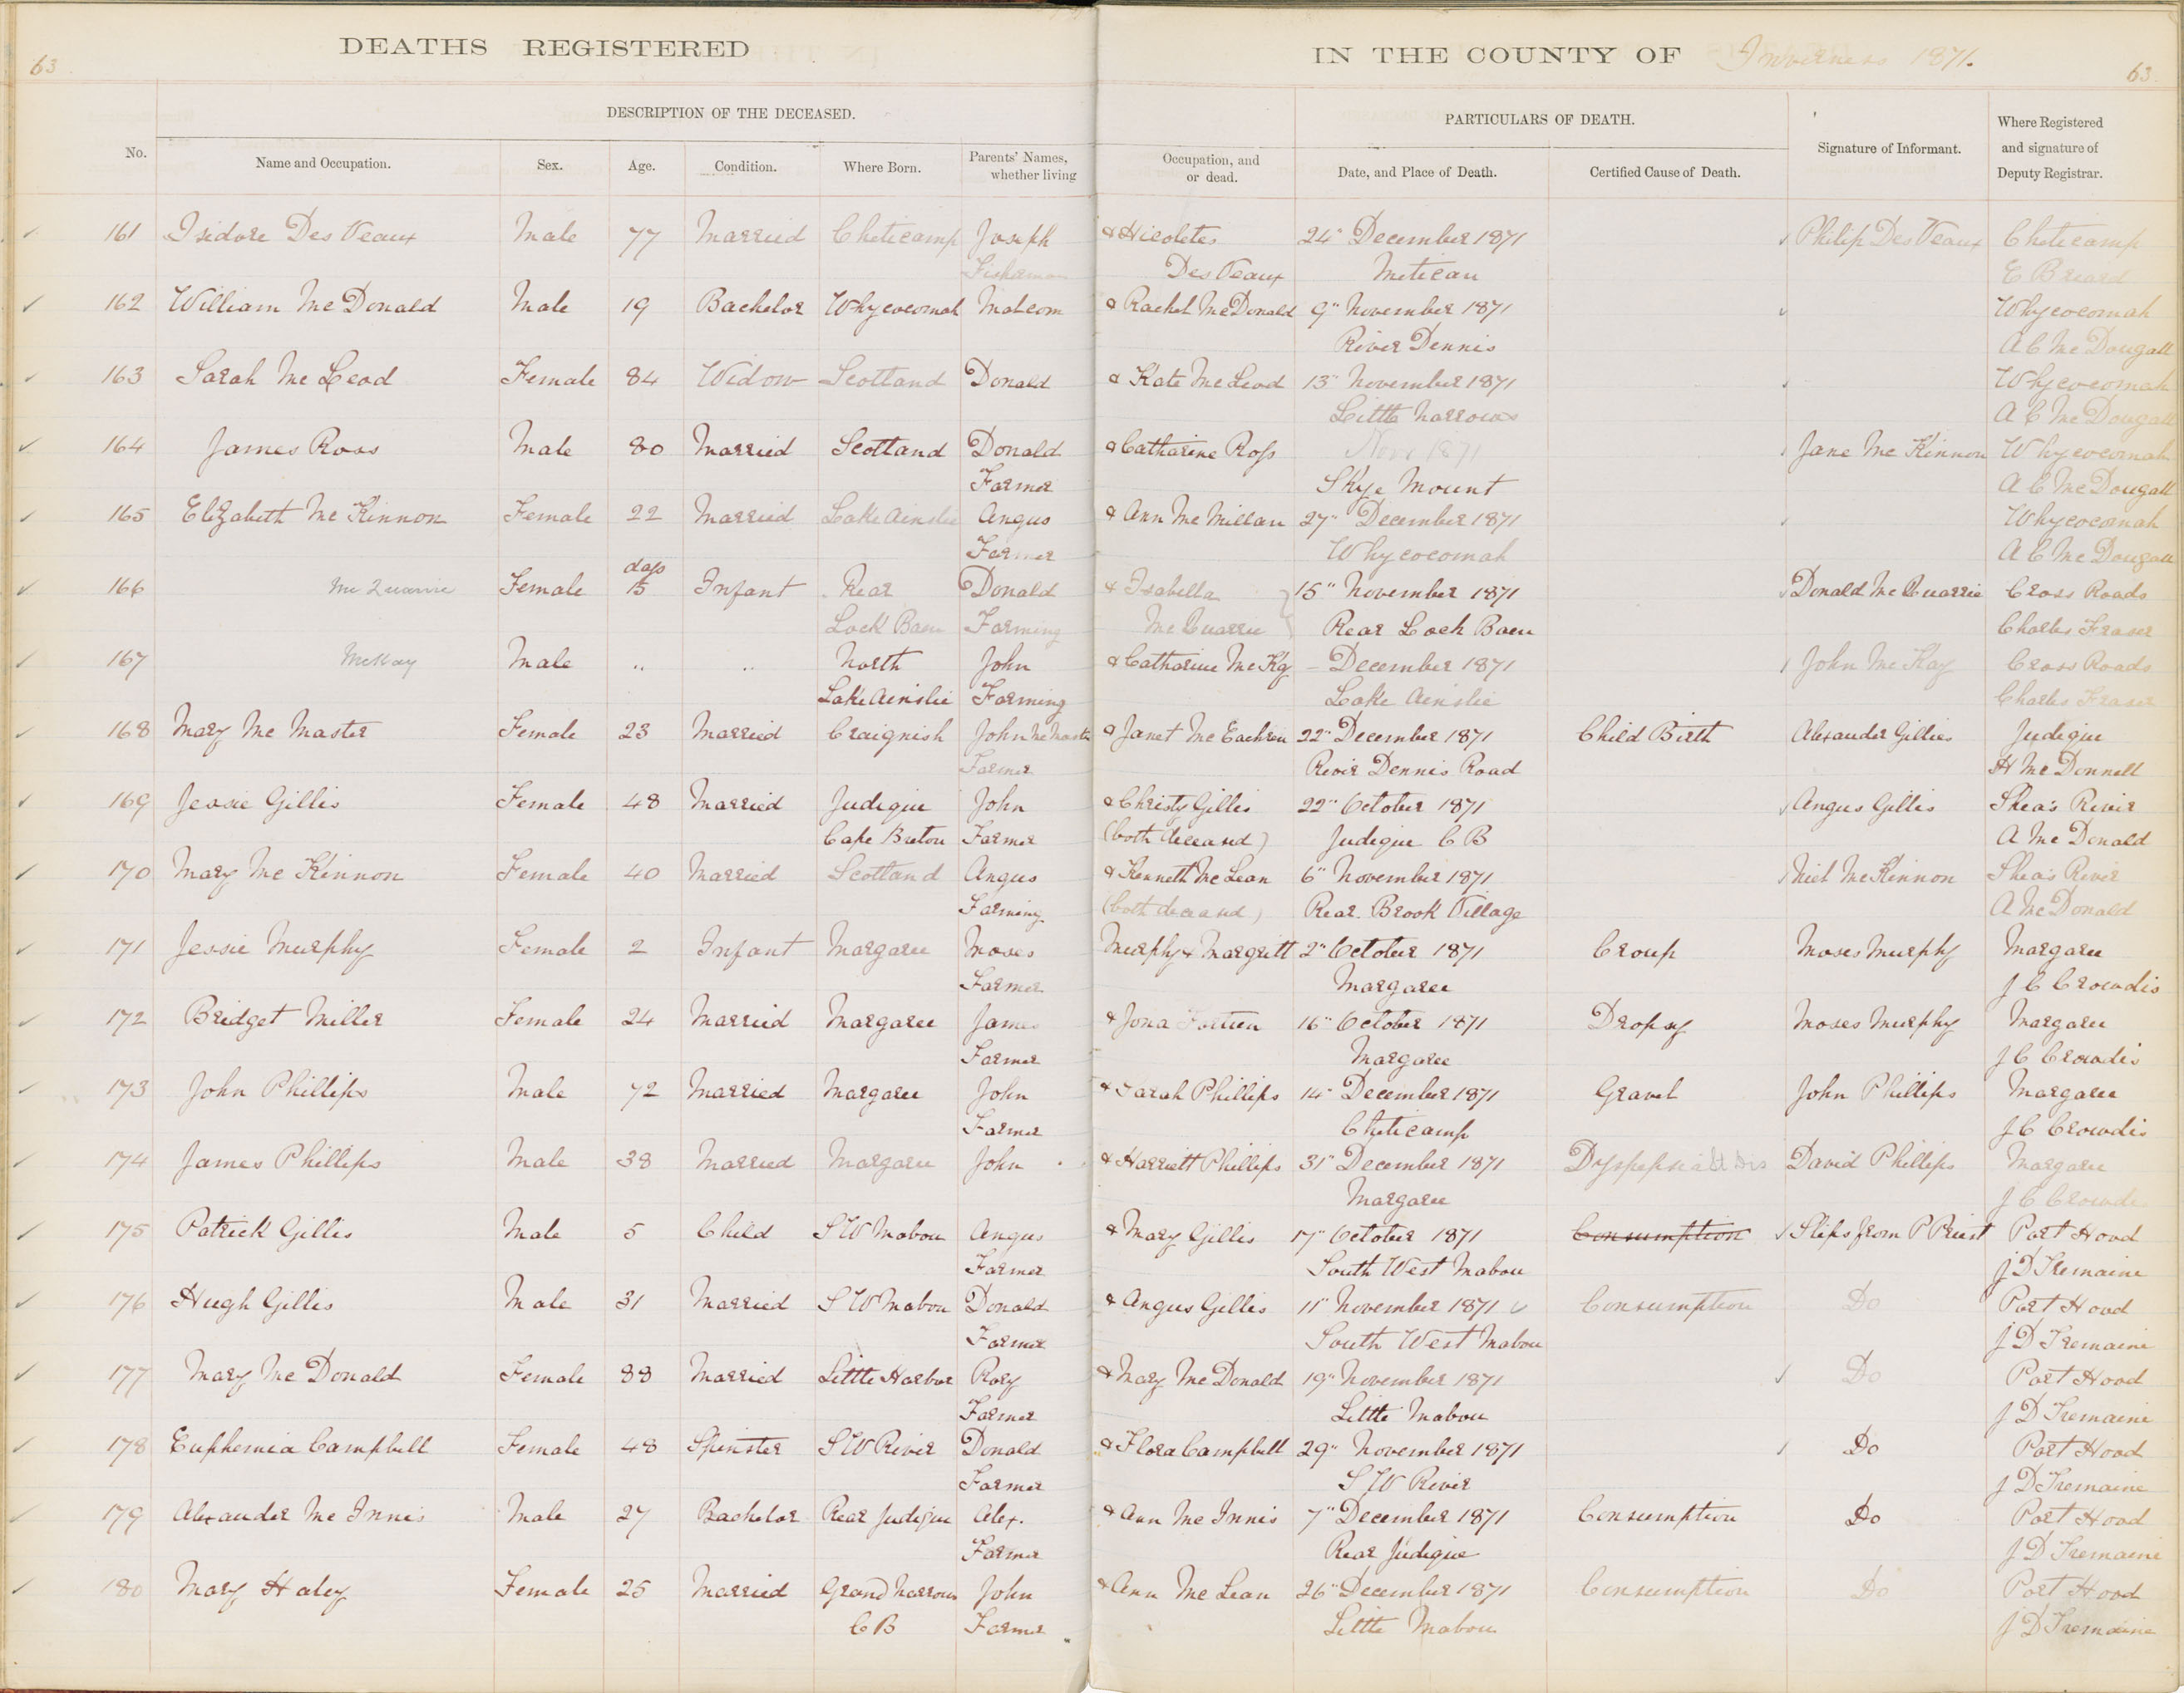 63
DEATHS REGISTERED
IN THE COUNTY OF Inverness 1871.
63
DESCRIPTION OF THE DECEASED.
PARTICULARS OF DEATH.
No.
Name and Occupation.
Sex.
Age.
Condition.
Where Born.
Parents' Names, whether living
Occupation, and or dead.
Date, and Place of Death.
Certified Cause of Death.
Signature of Informant.
Where Registered and signature of Deputy Registrar.
161 Isidore Des Veaux Male 77 Married Cheticamp Joseph & Nicoletes 24" December 1871 Philip Des Veaux Cheticamp
Fisherman Des Veaux Metican E Briard
162 William McDonald Male 19 Bachelor Whycocomah Malcom & Rachel McDonald 9" November 1871 Whycocomah
River Dennis A C McDougall
163 Sarah McLeod Female 84 Widow Scotland Donald & Kate McLeod 13" November 1871 Whycocomah
Little Narrows A C McDougall
164 James Ross Male 80 Married Scotland Donald & Catharine Ross Nov. 1871 Jane McKinnon Whycocomah
Farmer Skye Mount A C McDougall
165 Elizabeth McKinnon Female 22 Married Lake Ainslie Angus & Ann McMillan 27" December 1871 Whycocomah
Farmer Whycocomah A C McDougall
days
166 McQuarrie Female 15 Infant Rear Donald & Isabella 15" November 1871 Donald McQuarrie Cross Roads
Lock Ban Farming McQuarrie Rear Loch Baen Charles Fraser
167 McKay Male " " North John & Catharine McKy – December 1871 John McKay Cross Roads
Lake Ainslie Farming Lake Ainslie Charles Fraser
168 Mary McMaster Female 23 Married Craignish John McMaster & Janet McEachren 22" December 1871 Child Birth Alexander Gillies Judique
Farmer River Dennis Road H McDonnell
169 Jessie Gillis Female 48 Married Judique John & Christy Gillis 22" October 1871 Angus Gillis Shea's River
Cape Breton Farmer (both deceased) Judique C B A McDonald
170 Mary McKinnon Female 40 Married Scotland Angus & Kenneth McLean 6" November 1871 Neil McKinnon Shea's River
Farming (both deceased) Rear Brook Village A McDonald
171 Jessie Murphy Female 2 Infant Margaree Moses Murphy & Margritt 2" October 1871 Croup Moses Murphy Margaree
Farmer Margaree J C Crowdis
172 Bridget Miller Female 24 Married Margaree James & Jona 16" October 1871 Dropsy Moses Murphy Margaree
Farmer Margaree J C Crowdis
173 John Phillips Male 72 Married Margaree John & Sarah Phillips 14" December 1871 Gravel John Phillips Margaree
Farmer Cheticamp J C Crowdis
174 James Phillips Male 38 Married Margaree John & Harriett Phillips 31" December 1871 Dyspepsia David Phillips Margaree
Margaree J C Crowdis
175 Patrick Gillis Male 5 Child S W Mabou Angus & Mary Gillis 17" October 1871 Consumption Slips from P Priest Port Hood
Farmer South West Mabou J D Tremaine
176 Hugh Gillis Male 31 Married S W Mabou Donald & Angus Gillis 11" November 1871 Consumption Do Port Hood
Farmer South West Mabou J D Tremaine
177 Mary McDonald Female 88 Married Little Harbor Rory & Mary McDonald 19" November 1871 Do Port Hood
Farmer Little Mabou J D Tremaine
178 Euphemia Campbell Female 48 Spinster S W River Donald & Flora Campbell 29" November 1871 Do Port Hood
Farmer S W River J D Tremaine
179 Alexander McInnis Male 27 Bachelor Rear Judique Alex. & Ann McInnis 7" December 1871 Consumption Do Port Hood
Farmer Rear Judique J D Tremaine
180 Mary Haley Female 25 Married Grand Narrows John & Ann McLean 26" December 1871 Consumption Do Port Hood
C B Farmer Little Mabou J D Tremaine